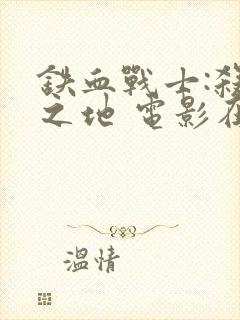 鉄血戰士:殺
之地 電影在
溫情